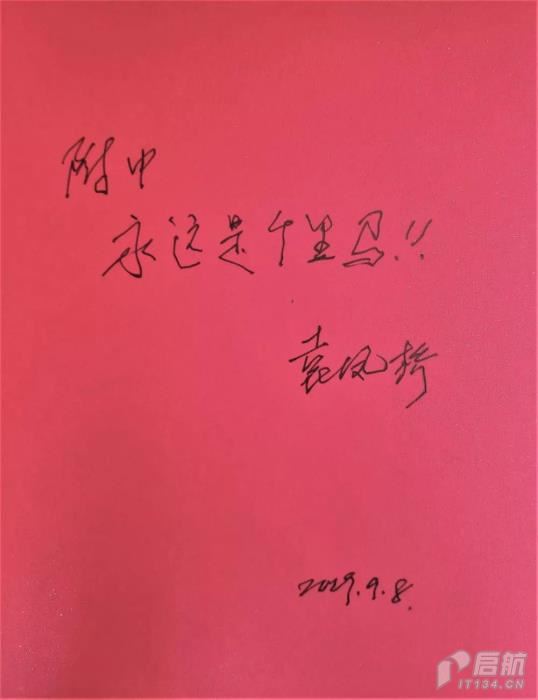 附中
永远是千里马!!
袁凤桥
2019.9.8.
启航
IT134.CN